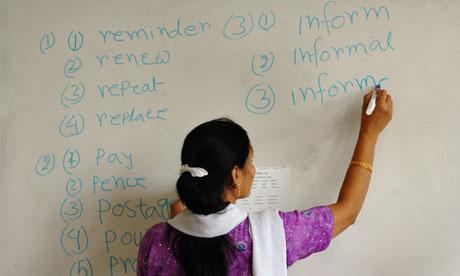 (1) (1) reminder
(2) renew
(3) repeat
(4) replace
(2) (1) pay
(2) pence
(3) postag
(4) pou
(5) pr
(3) (1) inform
(2) informal
(3) inform